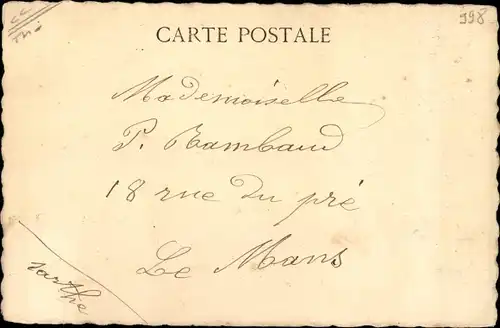 998
CARTE POSTALE
Mademoiselle
P. Rambaud
18 rue du pré
Le Mans
Sarthe